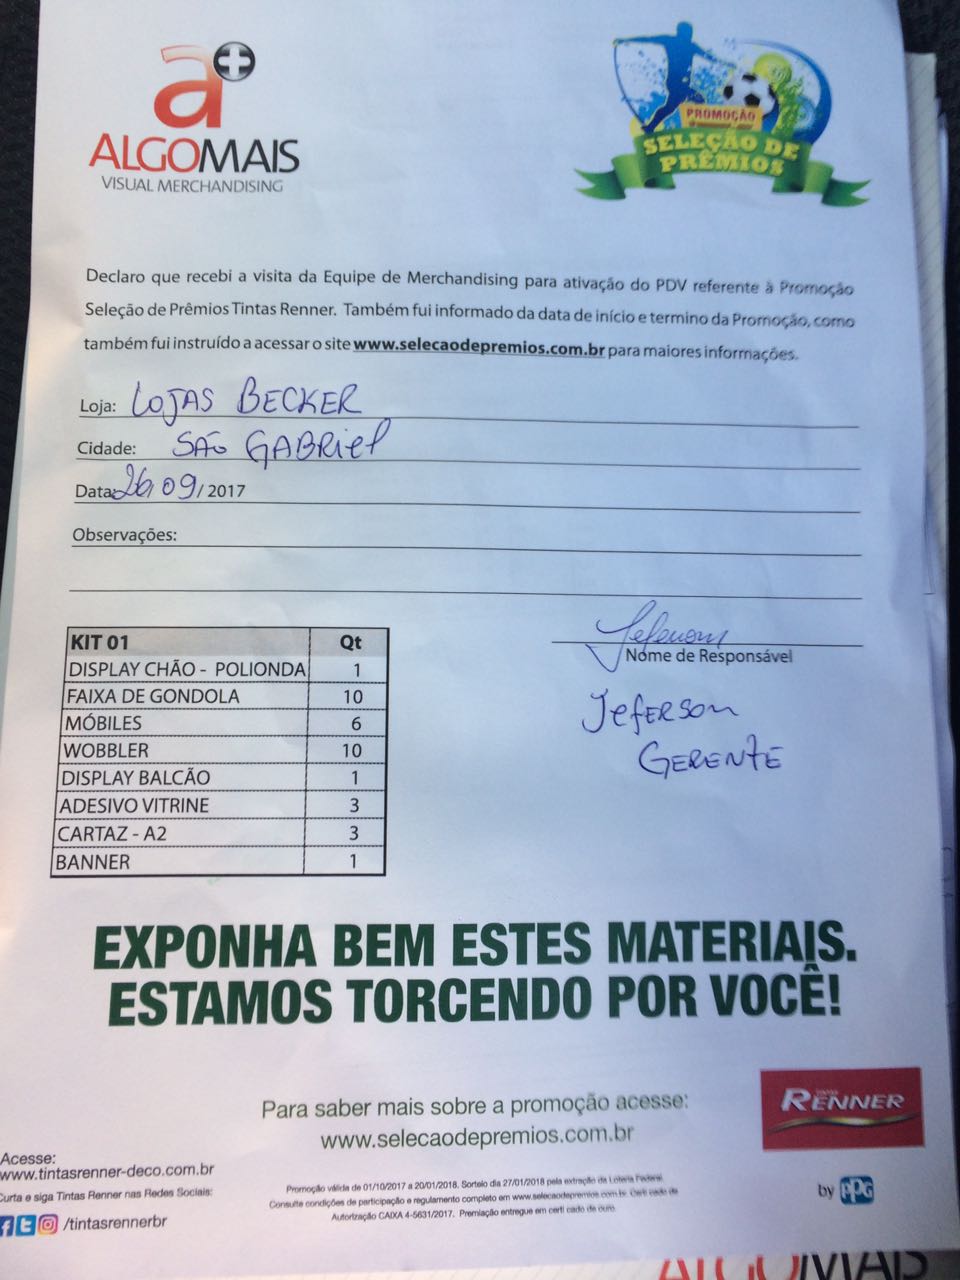 a+
ALGOMAIS
VISUAL MERCHANDISING
PROMOÇÃO
SELEÇÃO DE
PRÊMIOS
Declaro que recebi a visita da Equipe de Merchandising para ativação do PDV referente à Promoção
Seleção de Prêmios Tintas Renner. Também fui informado da data de início e termino da Promoção, como
também fui instruído a acessar o site www.selecaodepremios.com.br para maiores informações.
Loja: LOJAS BECKER
Cidade: SÃO GABRIEL
Data: 26/09/2017
Observações:
KIT 01 Qt
DISPLAY CHÃO - POLIONDA 1
FAIXA DE GONDOLA 10
MÓBILES 6
WOBBLER 10
DISPLAY BALCÃO 1
ADESIVO VITRINE 3
CARTAZ - A2 3
BANNER 1
Nome de Responsável
JEFERSON
GERENTE
EXPONHA BEM ESTES MATERIAIS.
ESTAMOS TORCENDO POR VOCÊ!
Para saber mais sobre a promoção acesse:
www.selecaodepremios.com.br
TINTAS
RENNER
by PPG
Acesse:
www.tintasrenner-deco.com.br
Curta e siga Tintas Renner nas Redes Sociais:
/tintasrennerbr
Promoção válida de 01/10/2017 a 20/01/2018. Sorteio dia 27/01/2018 pela extração da Loteria Federal.
Consulte condições de participação e regulamento completo em www.selecaodepremios.com.br. Certi cado de
Autorização CAIXA 4-5631/2017. Premiação entregue em certi cado de ouro.
ALGOMAIS